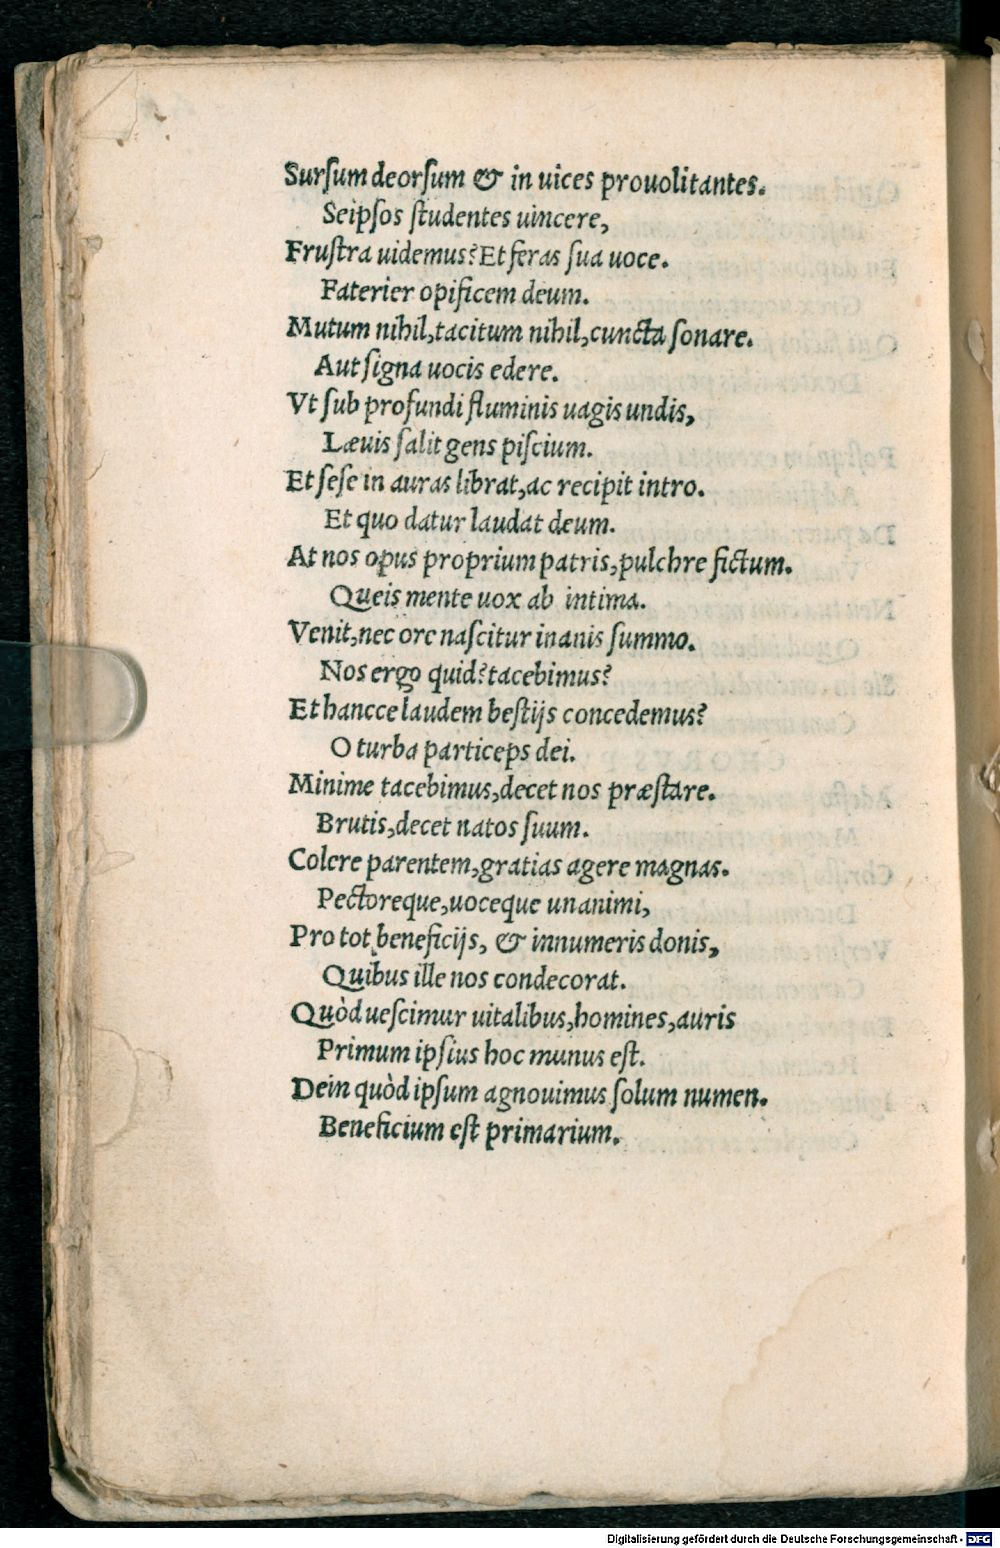 Surſum deorſum & in uices prouolitantes.
Seipſos ſtudentes uincere,
Fruſtra uidemus? Et feras ſua uoce.
Faterier opificem deum.
Mutum nihil, tacitum nihil, cuncta ſonare.
Aut ſigna uocis edere.
Vt ſub profundi fluminis uagis undis,
Læuis ſalit gens piſcium.
Et ſeſe in auras librat, ac recipit intro.
Et quo datur laudat deum.
At nos opus proprium patris, pulchre fictum.
Queis mente uox ab intima.
Venit, nec ore naſcitur inanis ſummo.
Nos ergo quid? tacebimus?
Et hancce laudem beſtijs concedemus?
O turba particeps dei.
Minime tacebimus, decet nos præſtare.
Brutis, decet natos ſuum.
Colere parentem, gratias agere magnas.
Pectoreque, uoceque unanimi,
Pro tot beneficijs, & innumeris donis,
Quibus ille nos condecorat.
Quòd ueſcimur uitalibus, homines, auris
Primum ipſius hoc munus eſt.
Dein quòd ipſum agnouimus ſolum numen.
Beneficium eſt primarium.
Digitalisierung gefördert durch die Deutsche Forschungsgemeinschaft - DFG